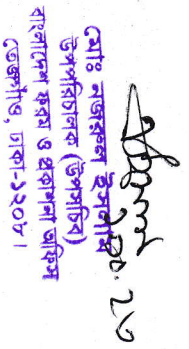 মোঃ নজরুল ইসলাম
উপপরিচালক (উপসচিব)
বাংলাদেশ ফরম ও প্রকাশনা অফিস
তেজগাঁও, ঢাকা-১২০৮।